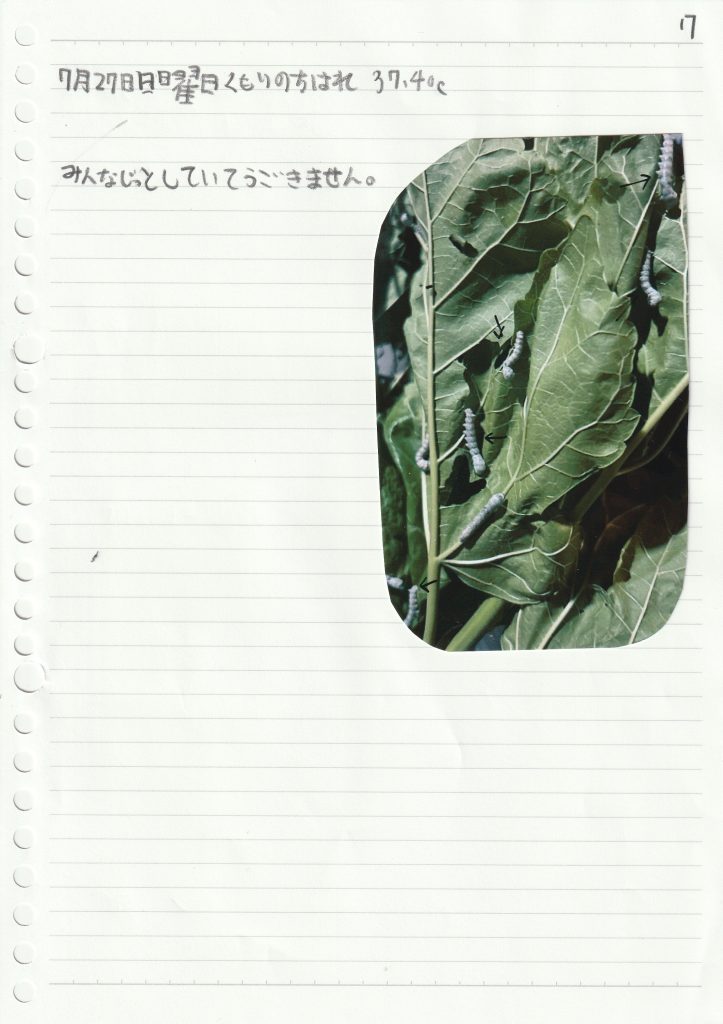 17
7月27日日曜日くもりのちはれ 37.4℃
みんなじっとしていてうごきません。